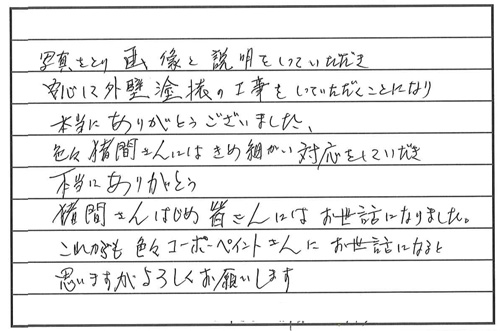 写真をとり画像と説明をしていただき
安心して外壁塗装の工事をしていただくことになり
本当にありがとうございました、
色々猪間さんにはきめ細かい対応をしていだき
本当にありがとう
猪間さんはじめ皆さんにはお世話になりました。
これからも色々コーポーペイントさんにお世話になると
思いますがよろしくお願いします